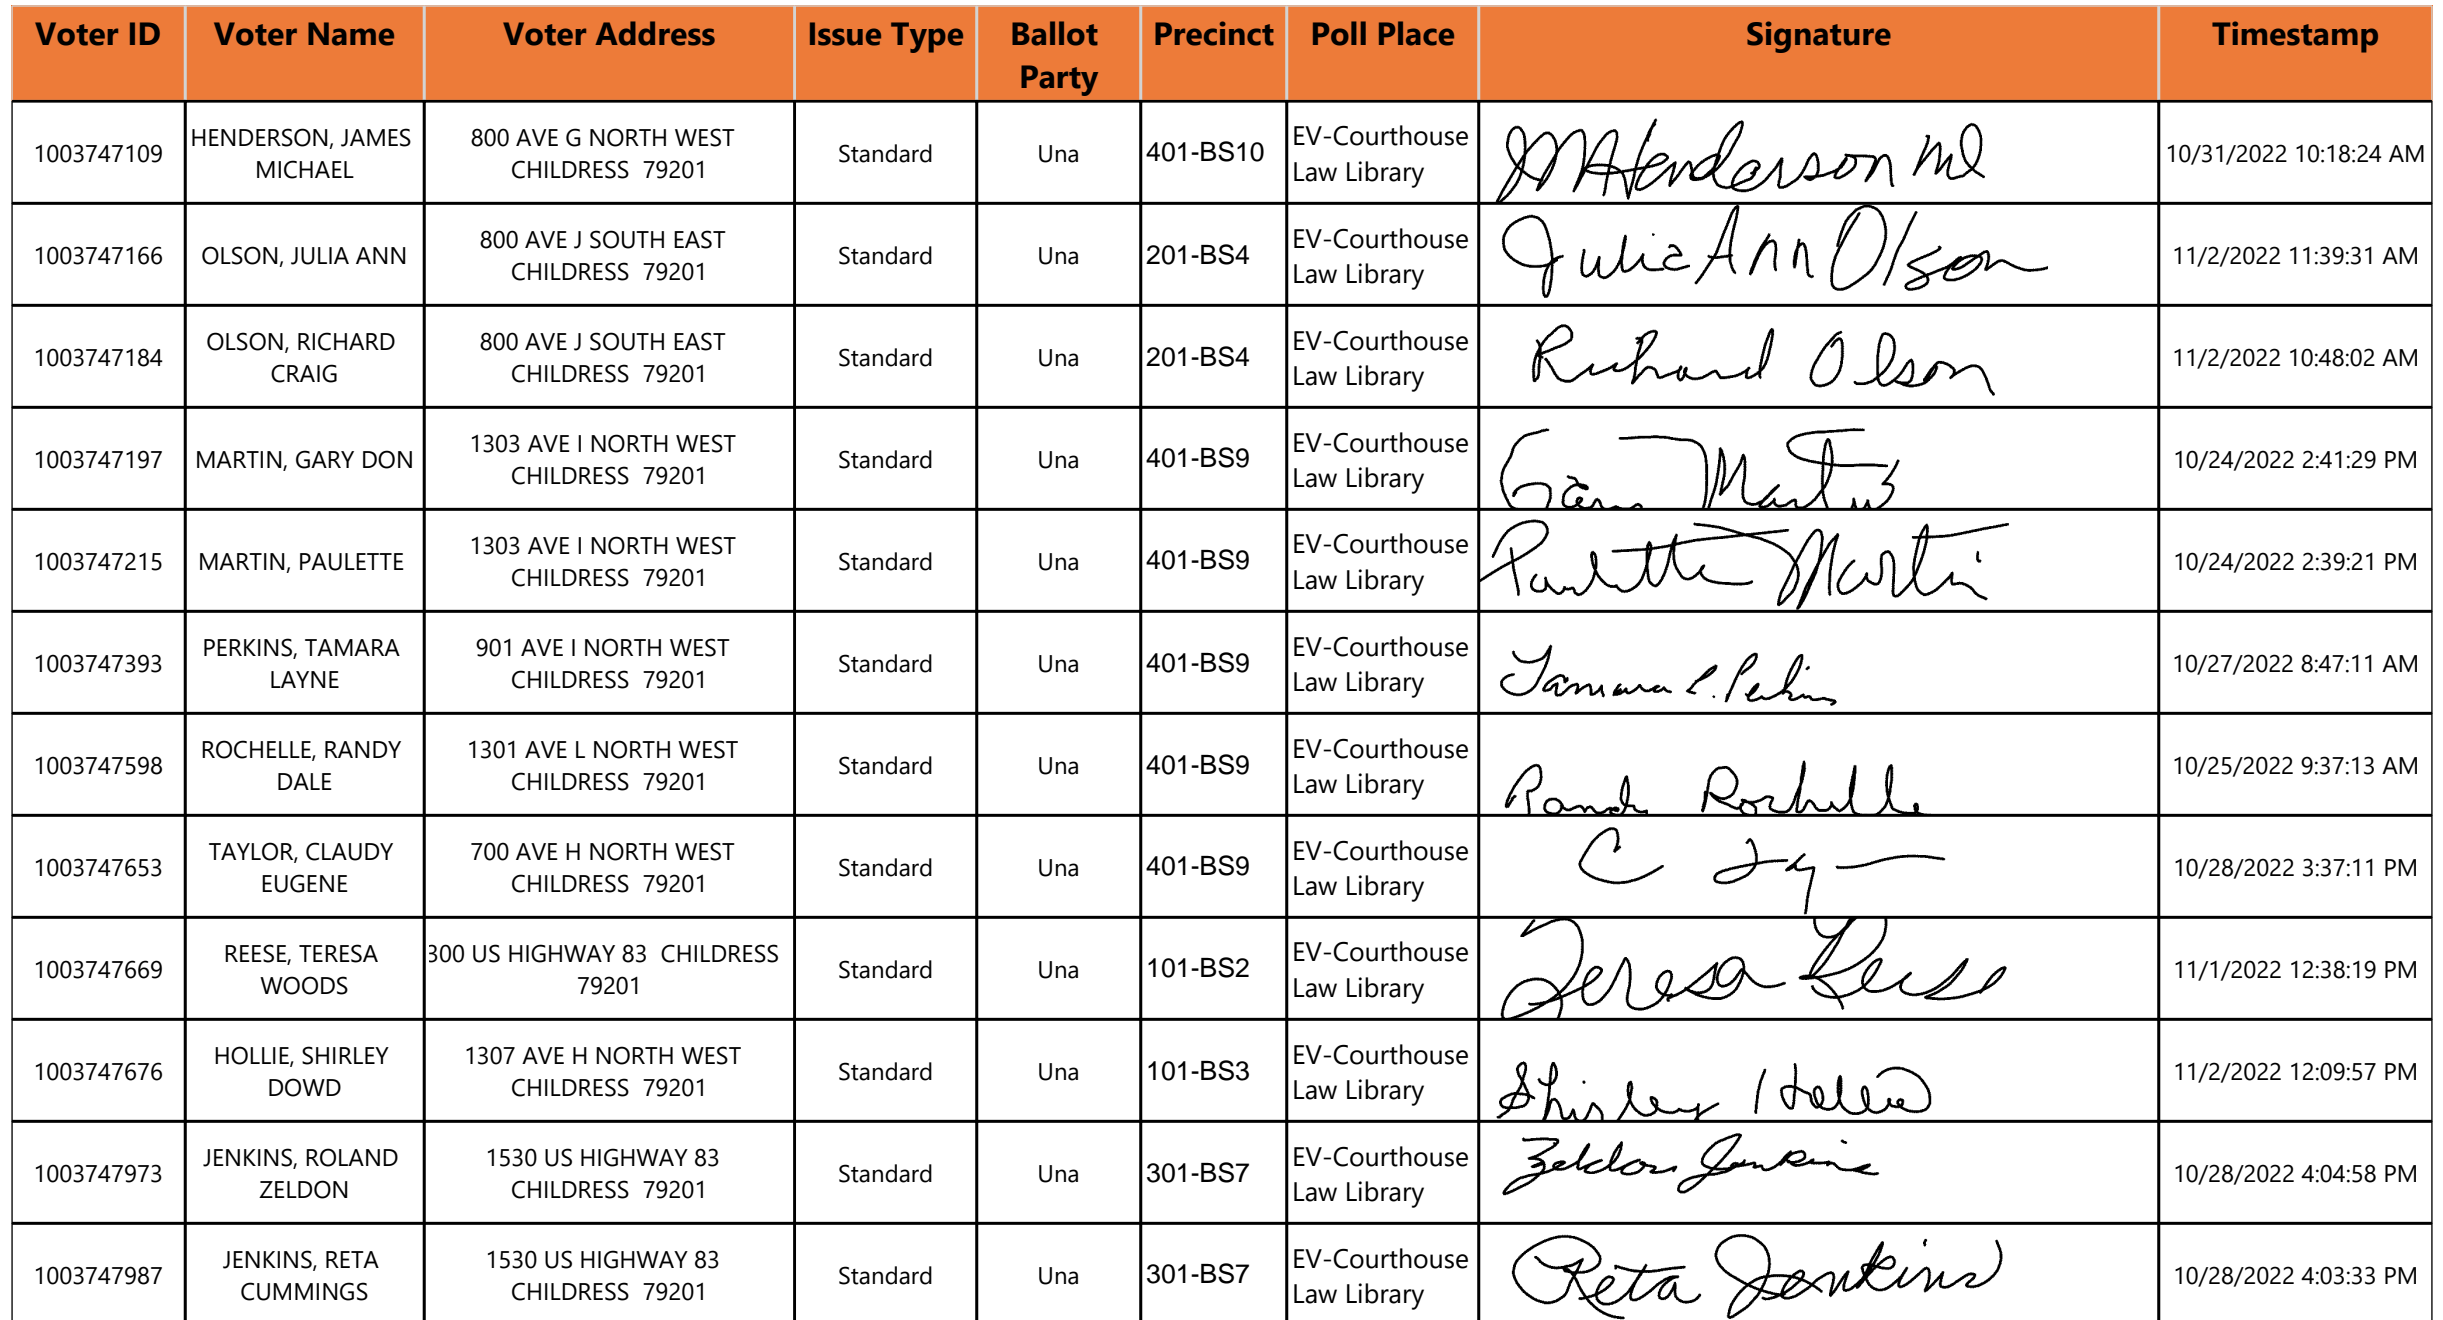 Voter ID Voter Name Voter Address Issue Type Ballot Party Precinct Poll Place Signature Timestamp
1003747109 HENDERSON, JAMES MICHAEL 800 AVE G NORTH WEST CHILDRESS 79201 Standard Una 401-BS10 EV-Courthouse Law Library JM Henderson MD 10/31/2022 10:18:24 AM
1003747166 OLSON, JULIA ANN 800 AVE J SOUTH EAST CHILDRESS 79201 Standard Una 201-BS4 EV-Courthouse Law Library Julia Ann Olson 11/2/2022 11:39:31 AM
1003747184 OLSON, RICHARD CRAIG 800 AVE J SOUTH EAST CHILDRESS 79201 Standard Una 201-BS4 EV-Courthouse Law Library Richard Olson 11/2/2022 10:48:02 AM
1003747197 MARTIN, GARY DON 1303 AVE I NORTH WEST CHILDRESS 79201 Standard Una 401-BS9 EV-Courthouse Law Library Gary Martin 10/24/2022 2:41:29 PM
1003747215 MARTIN, PAULETTE 1303 AVE I NORTH WEST CHILDRESS 79201 Standard Una 401-BS9 EV-Courthouse Law Library Paulette Martin 10/24/2022 2:39:21 PM
1003747393 PERKINS, TAMARA LAYNE 901 AVE I NORTH WEST CHILDRESS 79201 Standard Una 401-BS9 EV-Courthouse Law Library Tamara L. Perkins 10/27/2022 8:47:11 AM
1003747598 ROCHELLE, RANDY DALE 1301 AVE L NORTH WEST CHILDRESS 79201 Standard Una 401-BS9 EV-Courthouse Law Library Randy Rochelle 10/25/2022 9:37:13 AM
1003747653 TAYLOR, CLAUDY EUGENE 700 AVE H NORTH WEST CHILDRESS 79201 Standard Una 401-BS9 EV-Courthouse Law Library C 10/28/2022 3:37:11 PM
1003747669 REESE, TERESA WOODS 300 US HIGHWAY 83 CHILDRESS 79201 Standard Una 101-BS2 EV-Courthouse Law Library Teresa Reese 11/1/2022 12:38:19 PM
1003747676 HOLLIE, SHIRLEY DOWD 1307 AVE H NORTH WEST CHILDRESS 79201 Standard Una 101-BS3 EV-Courthouse Law Library Shirley Hollie 11/2/2022 12:09:57 PM
1003747973 JENKINS, ROLAND ZELDON 1530 US HIGHWAY 83 CHILDRESS 79201 Standard Una 301-BS7 EV-Courthouse Law Library Zeldon Jenkins 10/28/2022 4:04:58 PM
1003747987 JENKINS, RETA CUMMINGS 1530 US HIGHWAY 83 CHILDRESS 79201 Standard Una 301-BS7 EV-Courthouse Law Library Reta Jenkins 10/28/2022 4:03:33 PM